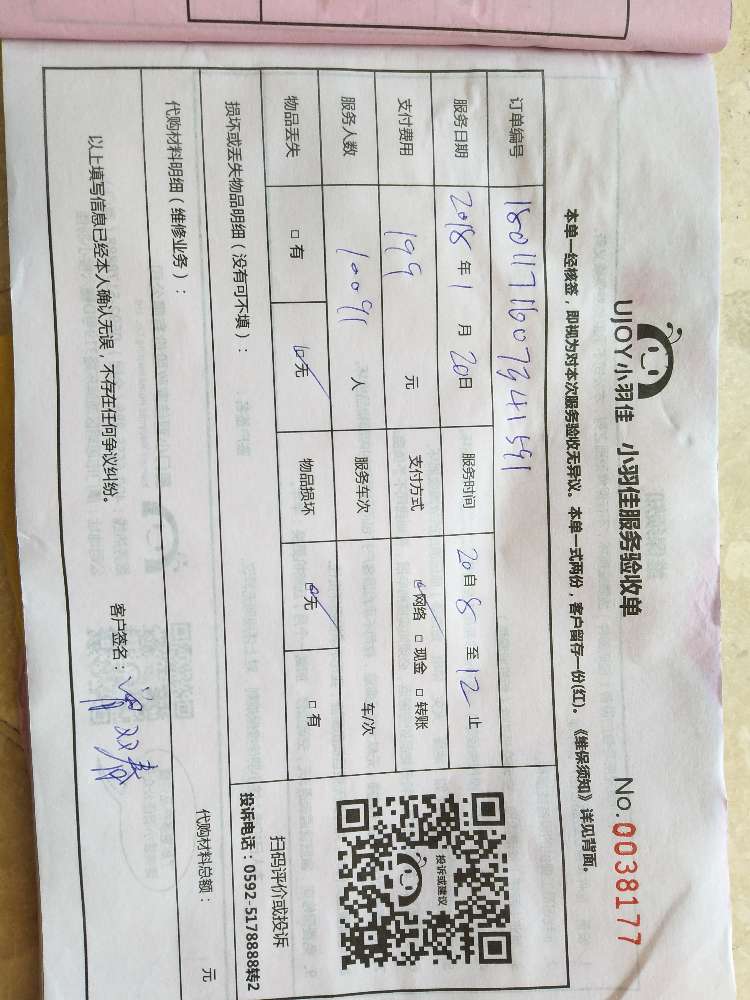 UJOY小羽佳 小羽佳服务验收单 No.0038177
本单一经核签，即视为对本次服务验收无异议。本单一式两份，客户留存一份(红)。《维保须知》详见背面。
订单编号 180117160739411591
服务日期 2018年1月20日 服务时间 20自8至12止
支付费用 199元 支付方式 网络 现金 转账
服务人数 10091人 服务车次 车/次
物品丢失 有 无 物品损坏 无 有
投诉或建议
扫码评价或投诉
投诉电话：0592-5178888转2
损坏或丢失物品明细（没有可不填）：
代购材料明细（维修业务）： 代购材料总额： 元
以上填写信息已经本人确认无误，不存在任何争议纠纷。 客户签名：